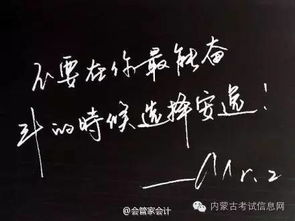 不要在你最能奋
斗的時候选择安逸！
—Mr.Z
@会管家会计
内蒙古考试信息网